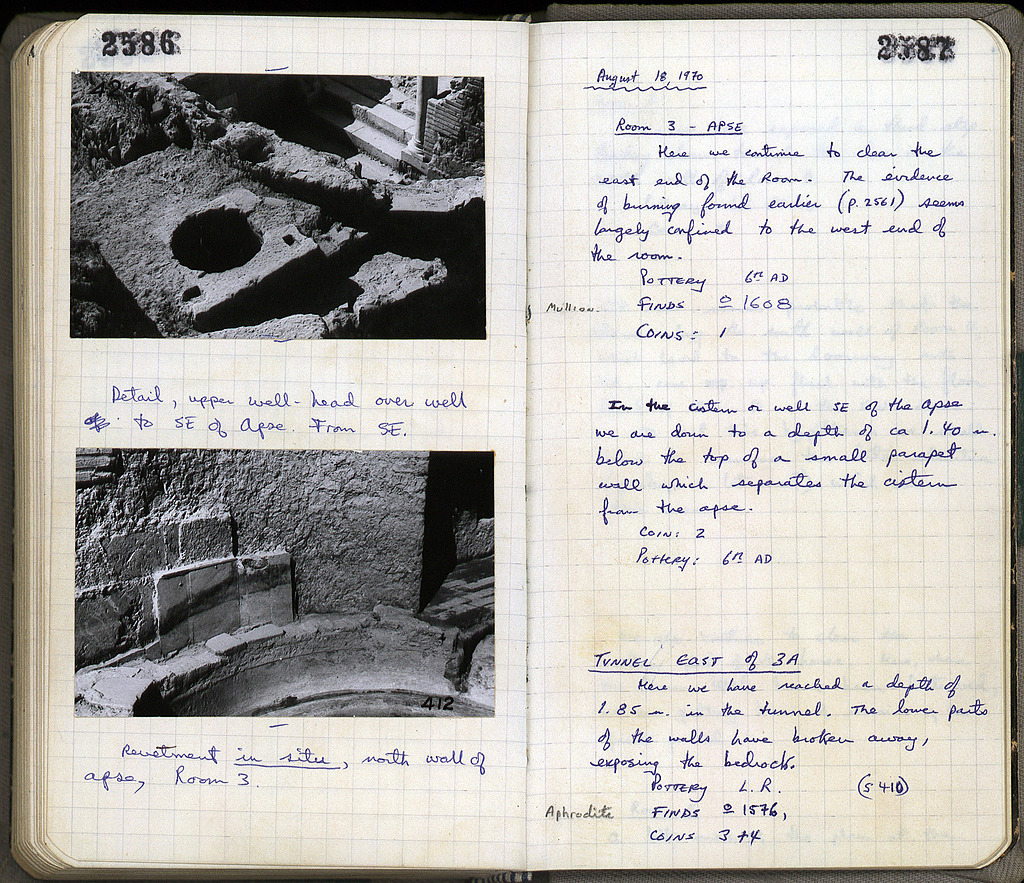 2586
484
Detail, upper well-head over well
to SE of Apse. From SE.
412
Revetment in situ, north wall of
apse, Room 3.
2587
August 18, 1970
Room 3 - APSE
Here we continue to clear the
east end of the Room. The evidence
of burning found earlier (p. 2561) seems
largely confined to the west end of
the room.
POTTERY 6th AD
Mullion.
FINDS 1608
COINS: 1
In the cistern or well SE of the apse
we are down to a depth of ca 1.40 m.
below the top of a small parapet
wall which separates the cistern
from the apse.
COIN: 2
Pottery: 6th AD
TUNNEL EAST of 3A
Here we have reached a depth of
1.85 m. in the tunnel. The lower parts
of the walls have broken away,
exposing the bedrock.
POTTERY L.R. (S 410)
Aphrodite
FINDS 1576,
COINS 3 + 4